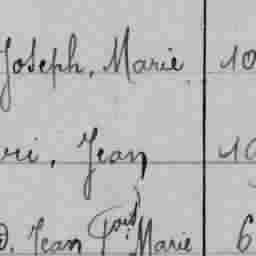 Joseph, Marie 10
ri, Jean 10
Jean Marie 6